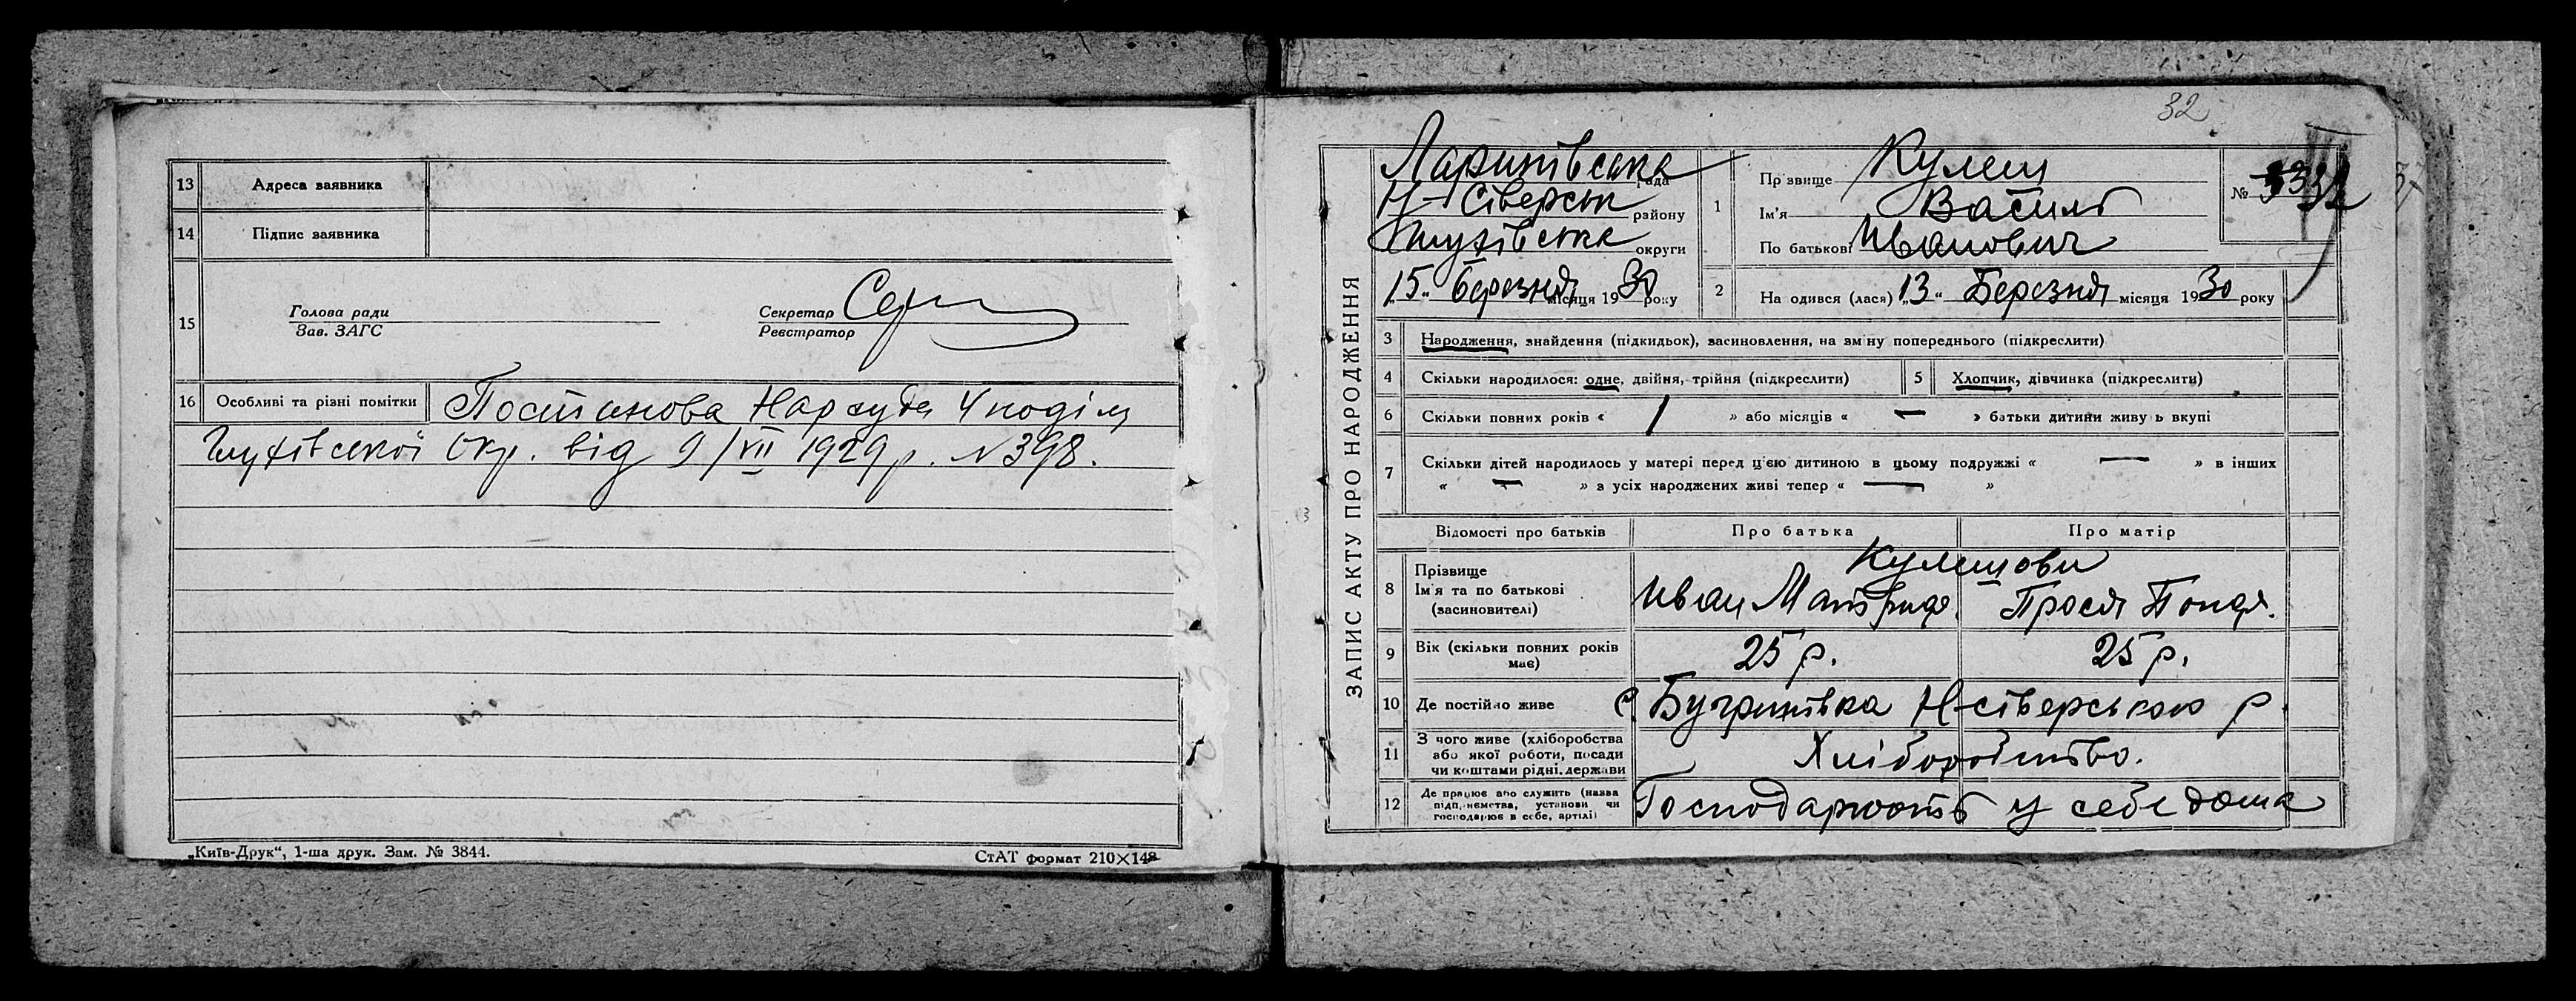 13 Адреса заявника
14 Підпис заявника
15 Голова ради
Зав. ЗАГС
Секретар
Реєстратор
16 Особливі та різні помітки Постанова Нарсуда
Глухівської Окр. від 9/VII 1929 р. №398.
„Київ-Друк“, 1-ша друк. Зам. № 3844.
СтАТ формат 210×148
32
ЗАПИС АКТУ ПРО НАРОДЖЕННЯ
Ларинівська рада
Н-Сіверськ району
Глухівська округи
„15“ березня місяця 1930 року
1 Прізвище Кулеш
Ім'я Василь
По батькові Иванович
№ 32
2 Народився (лася) „13“ Березня місяця 1930 року
3 Народження, знайдення (підкидьок), засиновлення, на зміну попереднього (підкреслити)
4 Скільки народилося: одне, двійня, трійня (підкреслити)
5 Хлопчик, дівчинка (підкреслити)
6 Скільки повних років « 1 » або місяців « — » батьки дитини живуть вкупі
7 Скільки дітей народилось у матері перед цією дитиною в цьому подружжі « — » в інших
« — » з усіх народжених живі тепер « — »
Відомості про батьків
Про батька
Про матір
8 Прізвище
Ім'я та по батькові
(засиновителі)
Кулешови
Иван
Прося
9 Вік (скільки повних років
має)
25 р.
25 р.
10 Де постійно живе с. Бугринівка Н-сіверського р.
11 З чого живе (хліборобства
або якої роботи, посади
чи коштами рідні, держави
Хліборобство.
12 Де працює або служить (назва
підприємства, установи чи
господарює в себе, артілі)
Господарюють у себе дома